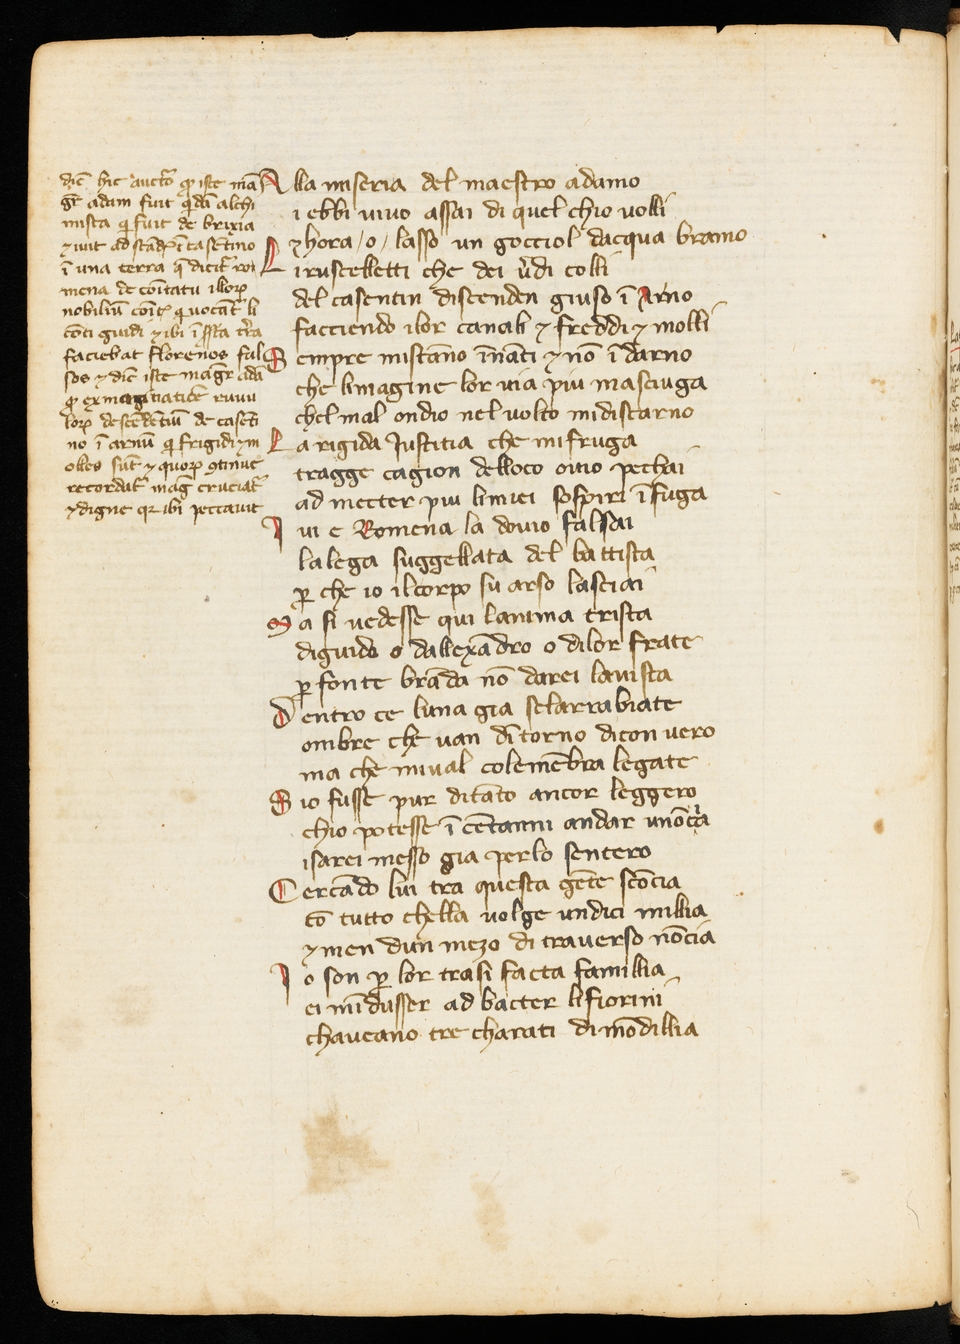 dic̄ hic auctō ꝙ iste ma
gr̄ adam fuit q̇dā alchi
mista q̇ fuit de brixia
⁊ iuit ad stād ī casētino
ī una terra q̄ dicit̄ ro
mena de cōitatu illoꝝ
nobiliū cōit q̇ uocāt̄ li
cōti guidi ⁊ ibi ī ista t̄ra
faciebat florenos fal
sos ⁊ dic̄ iste magr̄ adā
ꝙ ex
loꝝ descēdētiū de casēti
no ī arnū q̇ frigidi ⁊ m
olles sūt ⁊ quoꝝ ꝯtinue
recordat̄ mag cruciat̄
⁊ digne qꝛ ibi peccauit
Alla miseria del maestro adamo
i ebbi uiuo assai di quel chio uolli
⁊ hora / o / lasso un gocciol dacqua bramo
Li ruscelletti che dei v̓di colli
del casentin discenden giuso ī Arno
facciendo ilor canali ⁊ freddi ⁊ molli
Sempre mistāno īnāti ⁊ nō īdarno
che limagine lor uia piu masciuga
chel mal ondio nel uolto mi discarno
La rigida Justitia che mi fruga
tragge cagion delloco ouio pechai
ad metter piu li miei sospiri ī fuga
Iui e Romena la douio falsai
la lega suggellata del battista
ꝑ che io il corpo su arso lasciai
Ma si uedesse qui lanima trista
di guido o dallexādro o di lor frate
ꝑ fonte brāda nō darei la uista
Dentro ce luna gia se larrabiate
ombre che uan dītorno dicon uero
ma che mi ual co le mēbra legate
S io fusse pur di tāto ancor leggero
chio potesse ī cētanni andar unōcia
i sarei messo gia per lo sentero
Cercādo lui tra questa gēte scōcia
cō tutto chella uolge undici millia
⁊ men dun mezo di trauerso nōcia
Io son ꝑ lor tra si facta famillia
ei mīdusser ad bacter li fiorini
chaueano tre charati di mōdillia